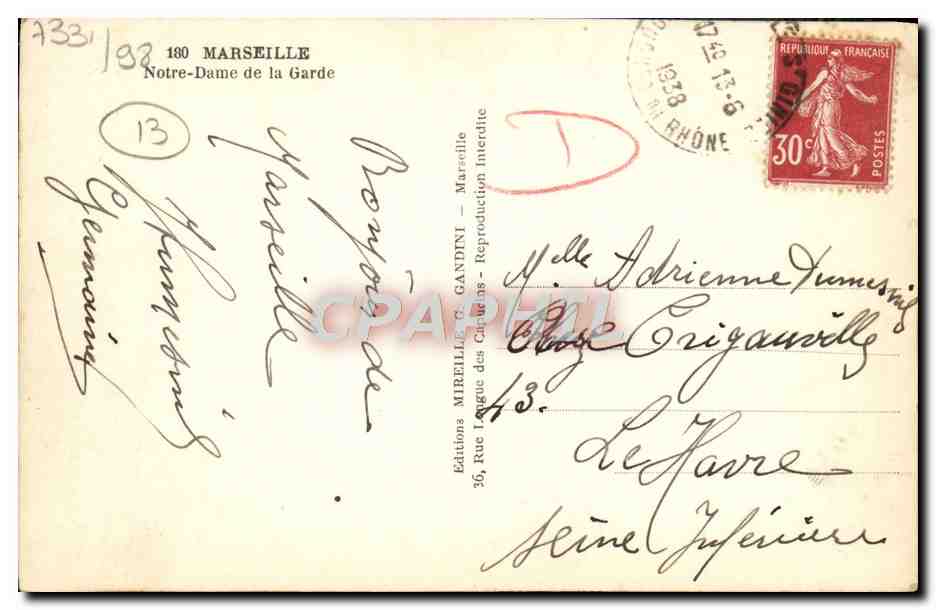 7331/98
180 MARSEILLE
Notre-Dame de la Garde
13
Bonjour de
Marseille
Dumesnil
Germaine
Editions MIREILLE G. GANDINI - Marseille
36, Rue Longue des Capucins - Reproduction Interdite
D
17 40 13-6
1938
DU RHÔNE
REPUBLIQUE FRANÇAISE
30c
POSTES
Melle Adrienne Dumesnil
43.
Le Havre
Seine Inférieure
CPAPHIL